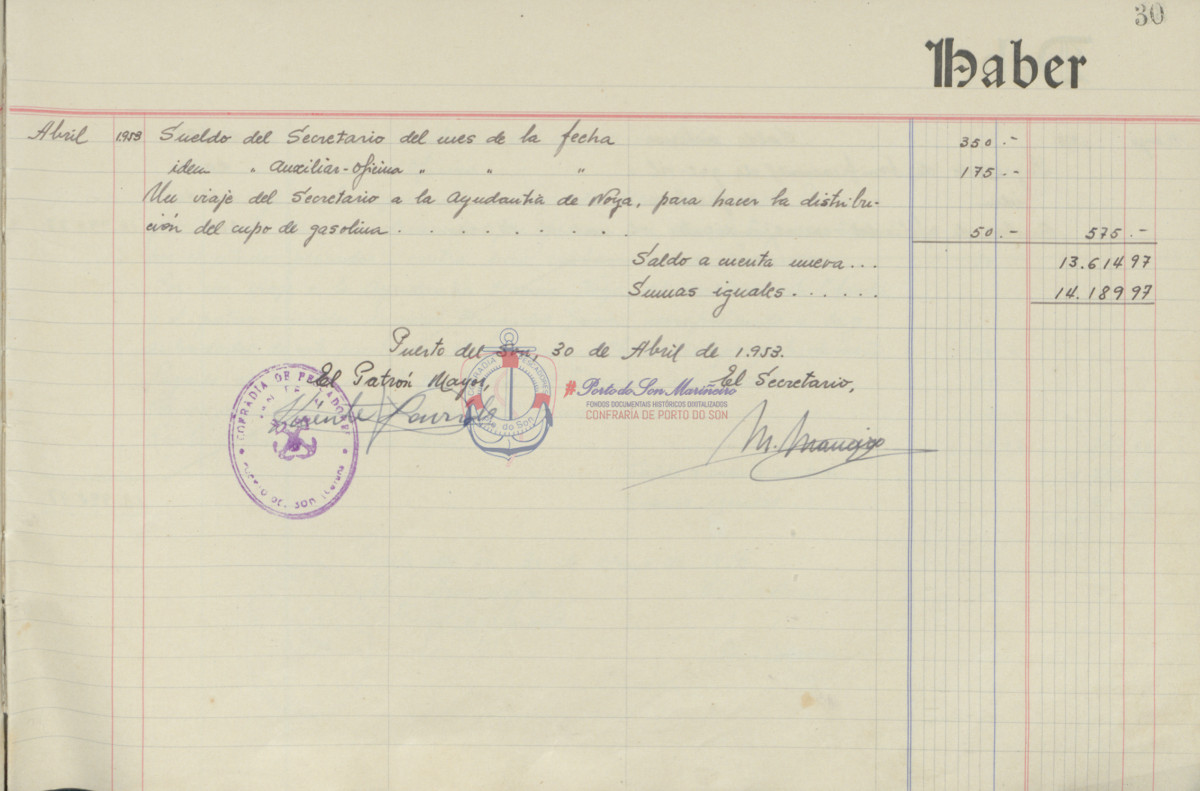 30
Haber
Abril 1953 Sueldo del Secretario del mes de la fecha 350.-
idem " Auxiliar-Oficina " " " 175.-
Un viaje del Secretario a la Ayudantía de Noya, para hacer la distribu-
ción del cupo de gasolina . . . . . . . . . 50.- 575.-
Saldo a cuenta nueva... 13.614 97
Sumas iguales...... 14.189 97
Puerto del Son, 30 de Abril de 1.953.
El Patrón Mayor, El Secretario,
COFRADIA DE PESCADORES
PUERTO DEL SON
do Son
#PortodoSonMariñeiro
FONDOS DOCUMENTAIS HISTÓRICOS DIXITALIZADOS
CONFRARÍA DE PORTO DO SON
Vicente
M.